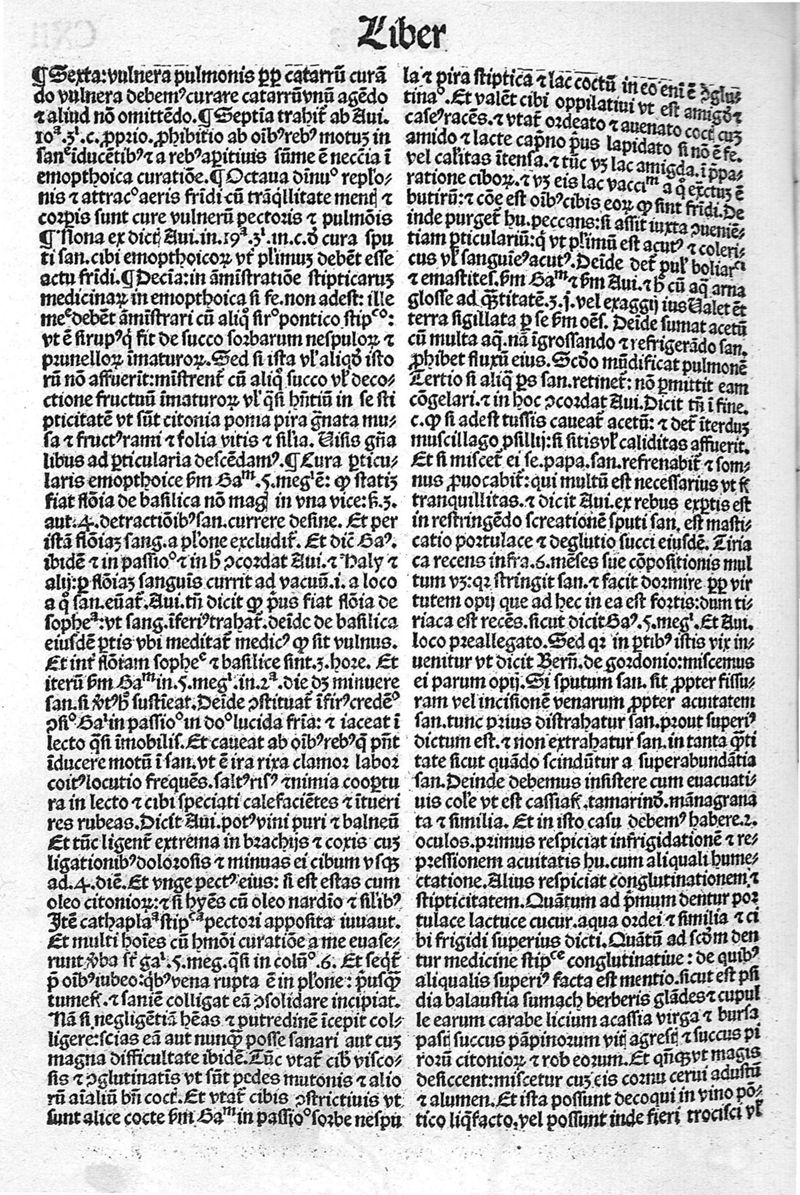 Liber
¶ Sexta: vulnera pulmonis ꝓp catarrū curā
do vulnera debemꝰ curare catarrū vnū agēdo
& aliud nō omittēdo. ¶ Septia trahit͛ ab Aui.
10ª.3ⁱ.c.ꝓprio. ꝓhibitio ab oībꝰ rebꝰ motuz in
sanᵉ īducētibꝰ & a rebꝰ apitiuis sūme ē neccīa ī
emopthoica curatiōe. ¶ Octaua dīnuᵒ replōˀ
nis & attracᵒ aeris frīdi cū trāq̄llitate menꝭ &
corpis sunt cure vulnerū pectoris & pulmōis
¶ Nona ex dictꝭ Aui.in.19ª.3ⁱ.in.c.ð cura spu
ti san. cibi emopthoicoꝝ vt̉ pl̄imuz debēt esse
actu frīdi. ¶ Decīa: in āmīstratiōe stipticaruz
medicinaꝝ in emopthoica si fe. non adest: ille
meᵉ debēt āmīstrari cū aliq̊ sirᵒ pontico stipᶜᵒ:
vt ē sirupꝰ q̇ fit de succo sorbarum nespuloꝝ &
prunelloꝝ īmaturoꝝ. Sed si ista vl̉ aliqð isto
rū nō affuerīt: mīstrent͛ cū aliq̊ succo vl̉ deco-
ctione fructuū īmaturoꝝ vl̉ q̇si hn̄tiū in se sti
pticitatē vt sūt citonia poma pira g̃nata mu-
sa & fructꝰ rami & folia vitis & silīa. Visis gn̄a
libus ad ꝑticularia descēdamꝰ. ¶ Cura ꝑticu-
laris emopthoice ẜm Gaᵐ.5.megᵉ.ē: ꝙ statiz
fiat flōia de basilica nō magꝭ in vna vice: ẜ.3.
aut.4. detractiōibꝰ san. currere desine. Et per
istā flōiaz sang. a pl̄one excludit͛. Et dīc̄ Gaꝰ.
ibidē & in passioᵒ & in hͦ ↄcordat Aui. & Haly &
alij: ꝑ flōiaz sanguis currit ad vacuū.i. a loco
a q̊ san. eūat͛. Aui. tn̄ dicit ꝙ p̄us fiat flōia de
sopheª: vt sang. īferiꝰ trahat͛. deīde de basilica
eiusdē ꝑtis vbi meditat͛ medicꝰ ꝙ sit vulnus.
Et int͛ flōiam sopheᵉ & basilice sint.3. hore. Et
iterū ẜm Gaᵐ in.5.megⁱ.in.2ª. die dz minuere
san. si v̊tꝰ hͦ sustīeat. Deīde ↄstituat͛ īfirꝰ credēᵒ
ↄsiᵒ Gaⁱ in passioᵒ in doᵒ lucida frīa: & iaceat ī
lecto q̄si īmobilis. Et caueat ab oībꝰ rebꝰ q̄ pn̄t
īducere motū ī san. vt ē ira rixa clamor labor
coitꝰ locutio frequēs. saltꝰ risꝰ & nimia coopertu
ra in lecto & cibi speciati calefaciētes & ītueri
res rubeas. Dicit Aui. potꝰ vini puri & balneū
Et tūc ligent͛ extrema in brachijs & coxis cuz
ligationibꝰ dolorosis & minuas ei cibum vsqz
ad.4.diē. Et vnge pectꝰ eius: si est estas cum
oleo citonioꝝ: & si hyēs cū oleo nardīo & silibꝰ
Itē cathaplaª stipᶜª pectori apposita iuuaut.
Et multi hoīes cū hmōi curatiōe a me euase-
runt v̊ba sr̄ gaⁱ.5.meg. q̄si in colūᵒ.6. Et seq̄t͛
p̄ oībꝰ iubeo: q̇bꝰ vena rupta ē in pl̄one: p̄usq̄
tumet͛. & saniē colligat eā ↄsolidare incipiat.
Nā si negligētiā hēas & putredinē īcepit col-
ligere: scias eā aut nunqp̄ posse sanari aut cuz
magna difficultate ibidē. Tūc vtat͛ cibꝭ visco-
sis & ↄglutinatīs vt sunt pedes mutonis & alio
rū aīaliū bn̄ coct͛. Et vtat͛ cibis ↄstrictiuis vt
sunt alice cocte ẜm Gaᵐ in passioᵒ sorbe nespu
la & pira stiptica & lac coctū in eo enī ē ↄglu-
tinaᵒ. Et valēt cibi oppilatiui vt est amigdꝰ &
caseꝰ racēs. & vtat͛ ordeato & auenato cocꝭ cuz
amido & lacte capno pus lapidato si nō ē fe.
vel caliītas ītensa. & tūc vz lac amigda. ī p̄pa-
ratione ciboꝝ. & vz eis lac vacciᵐ a q̊ exctuz ē
butirū: & cōe est oībꝰ cibis eoꝝ ꝙ sint frīdi. De
inde purget͛ hu. peccans: si assit iuxta ↄueniē-
tiam ꝑticulariū: q̇ vt pl̄imū est acutꝰ & coleri-
cus vl̉ sanguīeꝰ acutꝰ. Deīde det͛ pulꝰ boliarᶜⁱ
& emastites. ẜm Gaᵐ & ẜm Aui. & hͦ cū aq̄ arna
glosse ad q̄titatē.3.j. vel exaggij ius Valet ēt
terra sigillata ꝑ se ẜm oēs. Deīde sumat acetū
cū multa aq̄. nā īgrossando & refrigerādo san.
ꝓhibet fluxū eius. Scðo mūdificat pulmonē
Tertio si aliq̄ ps san. retinet͛: nō ꝑmittit eam
cōgelari. & in hoc ↄcordat Aui. Dicit tn̄ ī fine.
c. ꝙ si adest tussis caueat͛ acetū: & det͛ īterduz
muscillago psillij: si sitis vl̉ caliditas affuerit.
Et si miscet͛ ei se. papa. san. refrenabit͛ & som-
nus ꝓuocabit͛: qui multū est necessarius vt sit
tranquillitas. & dicit Aui. ex rebus exptis est
in restringēdo screationē sputi san. est masti-
catio portulace & deglutio succi eiusdē. Tiria
ca recens infra.6.mēses sue cōpositionis mul
tum vz: qz stringit san. & facit dormire ꝓp vir
tutem opij que ad hec in ea est fortis: dum ti-
riaca est recēs. sicut dicit Gaꝰ.5.megⁱ. Et Aui.
loco preallegato. Sed qz in ꝑtibꝰ istis vix in-
uenitur vt dicit Berñ. de gordonio: miscemus
ei parum opij. Si sputum san. sit ꝓpter fissu-
ram vel incisionē venarum ꝓpter acuitatem
san. tunc prius distrahatur san. prout superiꝰ
dictum est. & non extrahatur san. in tanta q̄ti
tate sicut quādo scindūtur a superabundātia
san. Deinde debemus insistere cum euacuati-
uis coleᶜ vt est cassiaf͛. tamarinð. mānagrana
ta & similia. Et in isto casu debemꝰ habere.2.
oculos. primus respiciat infrigidationē & re-
pressionem acuitatis hu. cum aliquali hume-
ctatione. Alius respiciat conglutinationem &
stipticitatem. Quātum ad p̄mum dentur por
tulace lactuce cucur. aqua ordei & similia & ci
bi frigidi superius dicti. Quātū ad scðm den
tur medicine stipᶜᵉ conglutinatiue: de quibꝰ
aliqualis superiꝰ facta est mentio. sicut est psi
dia balaustia sumach berberis glādes & cupul
le earum carabe licium acassia virga & bursa
pastꝭ succus pāpinorum vitꝭ agrestꝭ & succus pi
rorū citonioꝝ & rob eorum. Et qn̄qz vt magis
desiccent: miscetur cuz eis cornu cerui adustū
& alumen. Et ista possunt decoqui in vino pō-
tico liq̄facto. vel possunt inde fieri trocisci vl̉